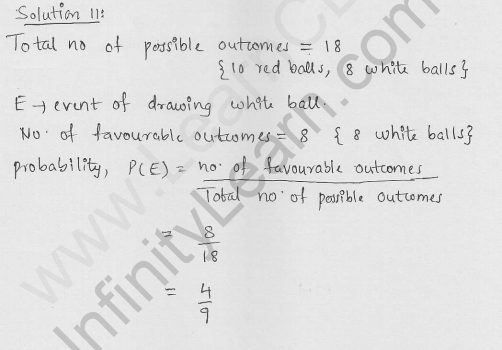 Solution 11:
Total no of possible outcomes = 18
{10 red balls, 8 white balls}
E → event of drawing white ball.
No. of favourable outcomes = 8 { 8 white balls}
probability, P(E) = no. of favourable outcomes
Total no. of possible outcomes
= 8
18
= 4
9
www.Learn CBSE
InfinityLearn.com